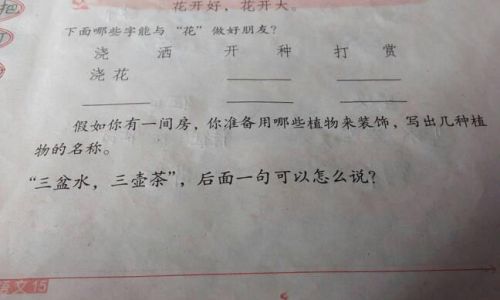 花开好，花开大。
下面哪些字能与“花”做好朋友？
浇 洒 开 种 打 赏
浇花
假如你有一间房，你准备用哪些植物来装饰，写出几种植
物的名称。
“三盆水，三壶茶”，后面一句可以怎么说？
语文 15